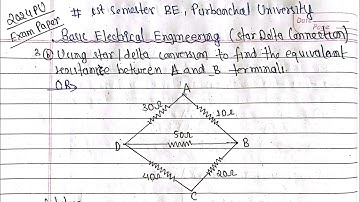 2024 PU
Exam Paper
# 1st Semester BE, Purbanchal University
Basic Electrical Engineering (Star Delta Connection)
2. (b) Using star/delta conversion to find the equivalent
resistance between A and B terminals.
OR
A
30Ω
10Ω
50Ω
D
B
40Ω
20Ω
C